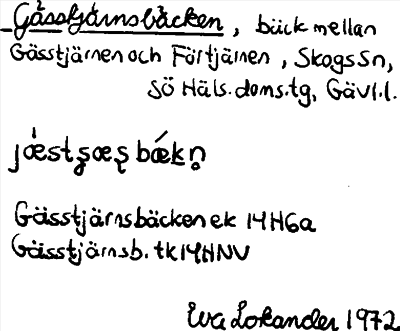 Gässtjärnsbäcken, bäck mellan
Gässtjärnen och Förtjärnen, Skogs Sn,
Sö Häls. doms.tg, Gävl.l.
jǿstʂæʂ bækn̥
Gässtjärnsbäcken ek 14H6a
Gässtjärnsb. tk14HNV
Eva Lokander 1972